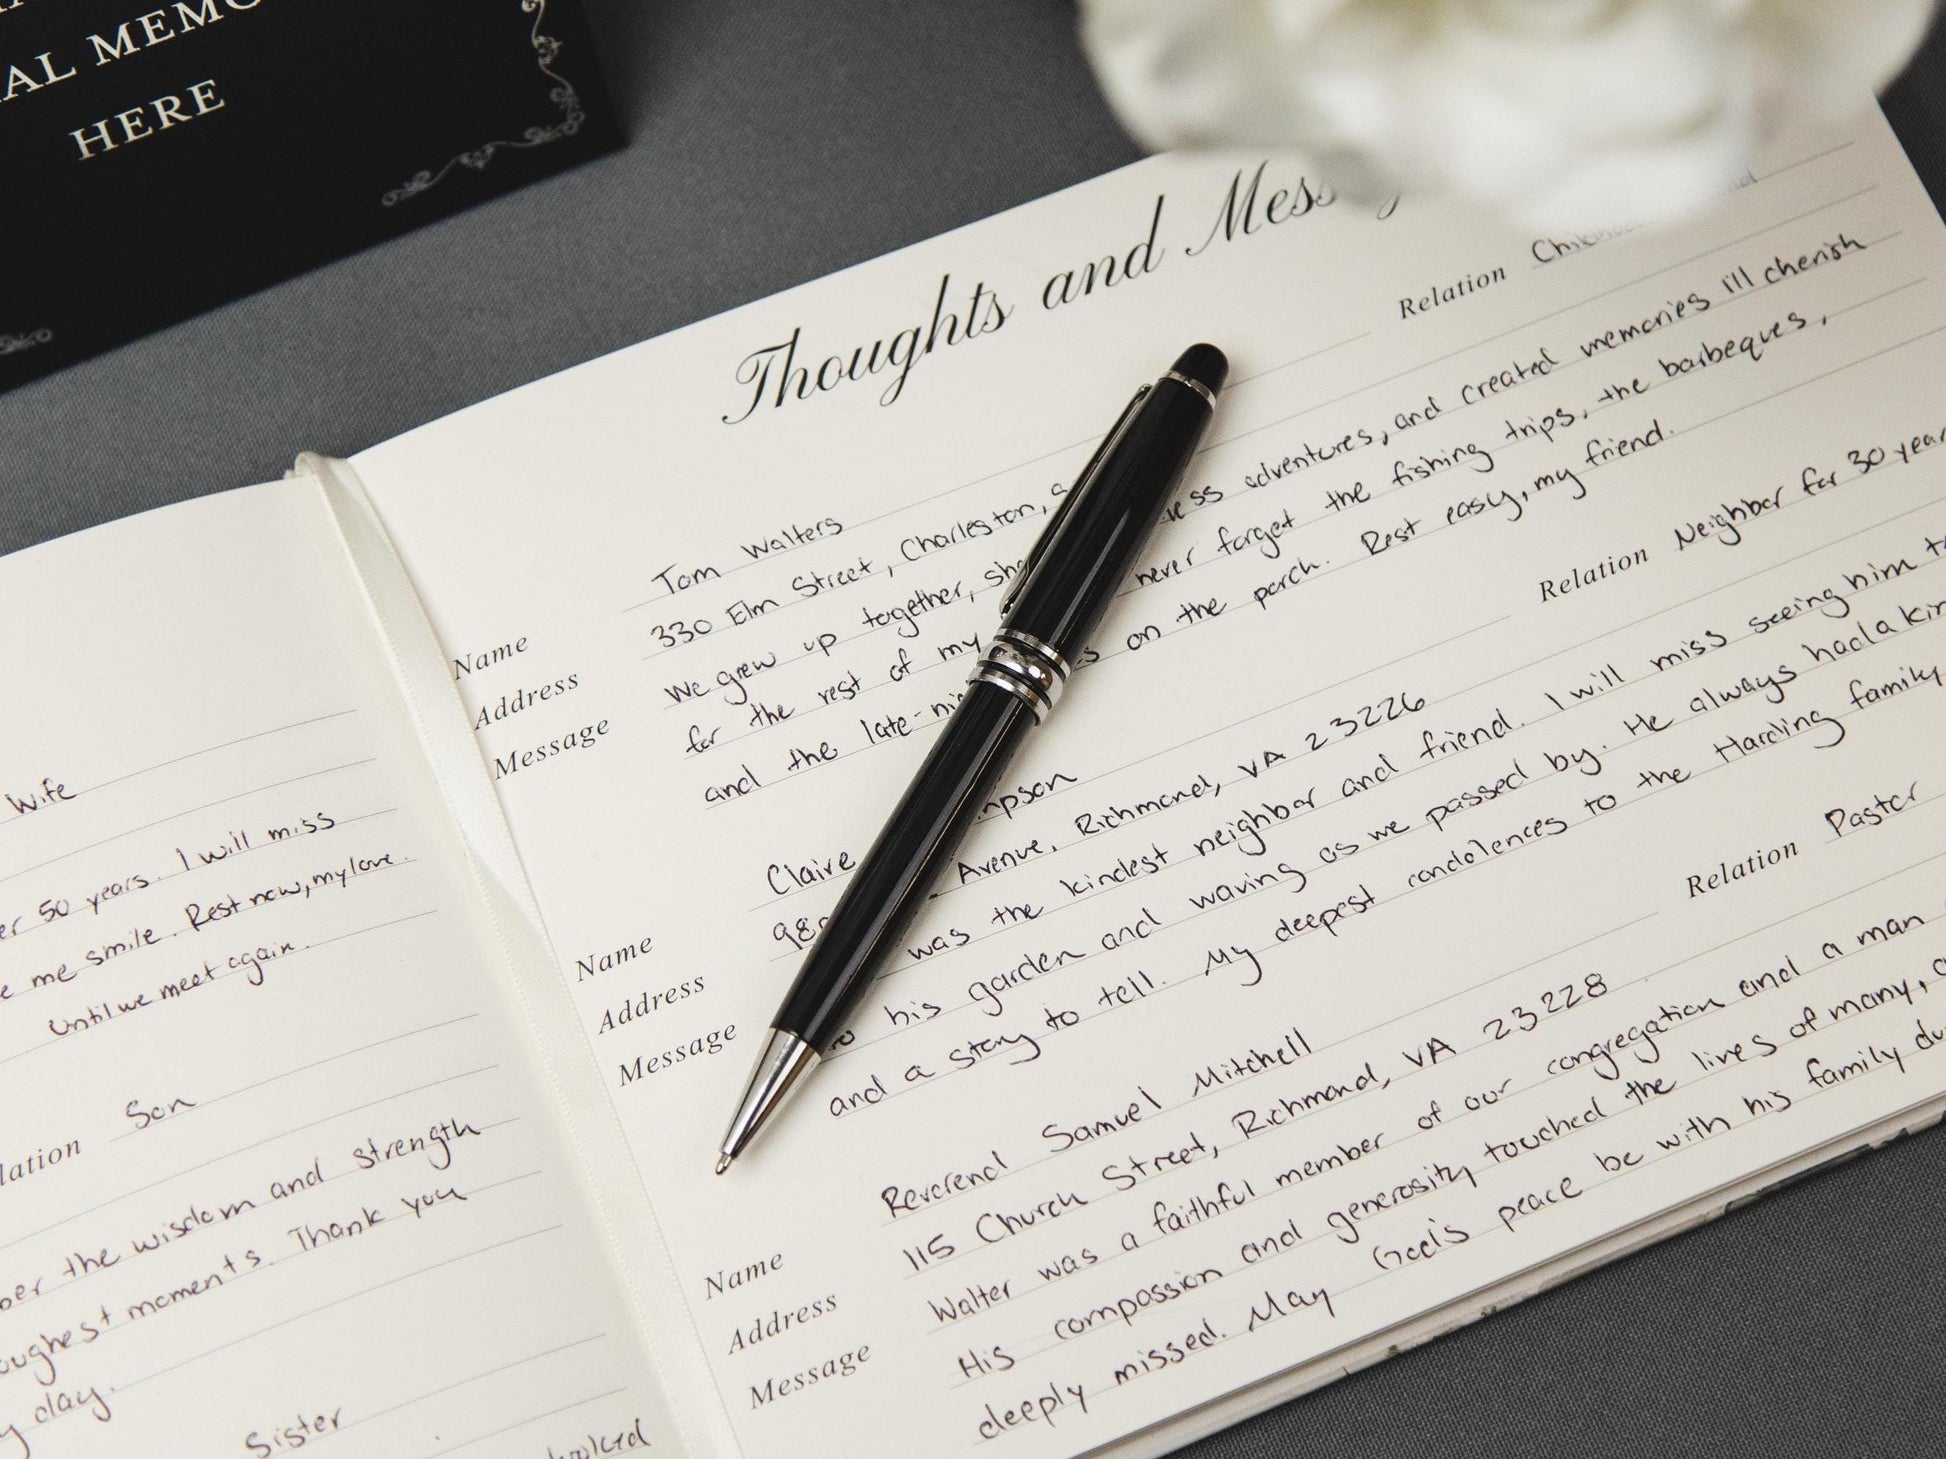 AL MEMO
HERE
Wife
50 years. I will miss
me smile. Rest now, my love.
Until we meet again.
Son
the wisdom and strength
moments. Thank you
day.
Sister
Thoughts and
Relation
Name Tom Walters
Address 330 Elm Street, Charleston,
Message We grew up together, adventures, and created memories ill cherish
for the rest of my never forget the fishing trips, the barbeques,
and the on the porch. Rest easy, my friend.
Relation Neighbor for 30
Name Claire
Address Avenue, Richmond, VA 23226
Message was the kindest neighbor and friend. I will miss seeing him
his garden and waving as we passed by. He always had a
and a story to tell. My deepest condolences to the Harding family
Relation Pastor
Name Reverend Samuel Mitchell
Address 115 Church Street, Richmond, VA 23228
Message Walter was a faithful member of our congregation and a man
His compassion and generosity touched the lives of many,
deeply missed. May God's peace be with his family